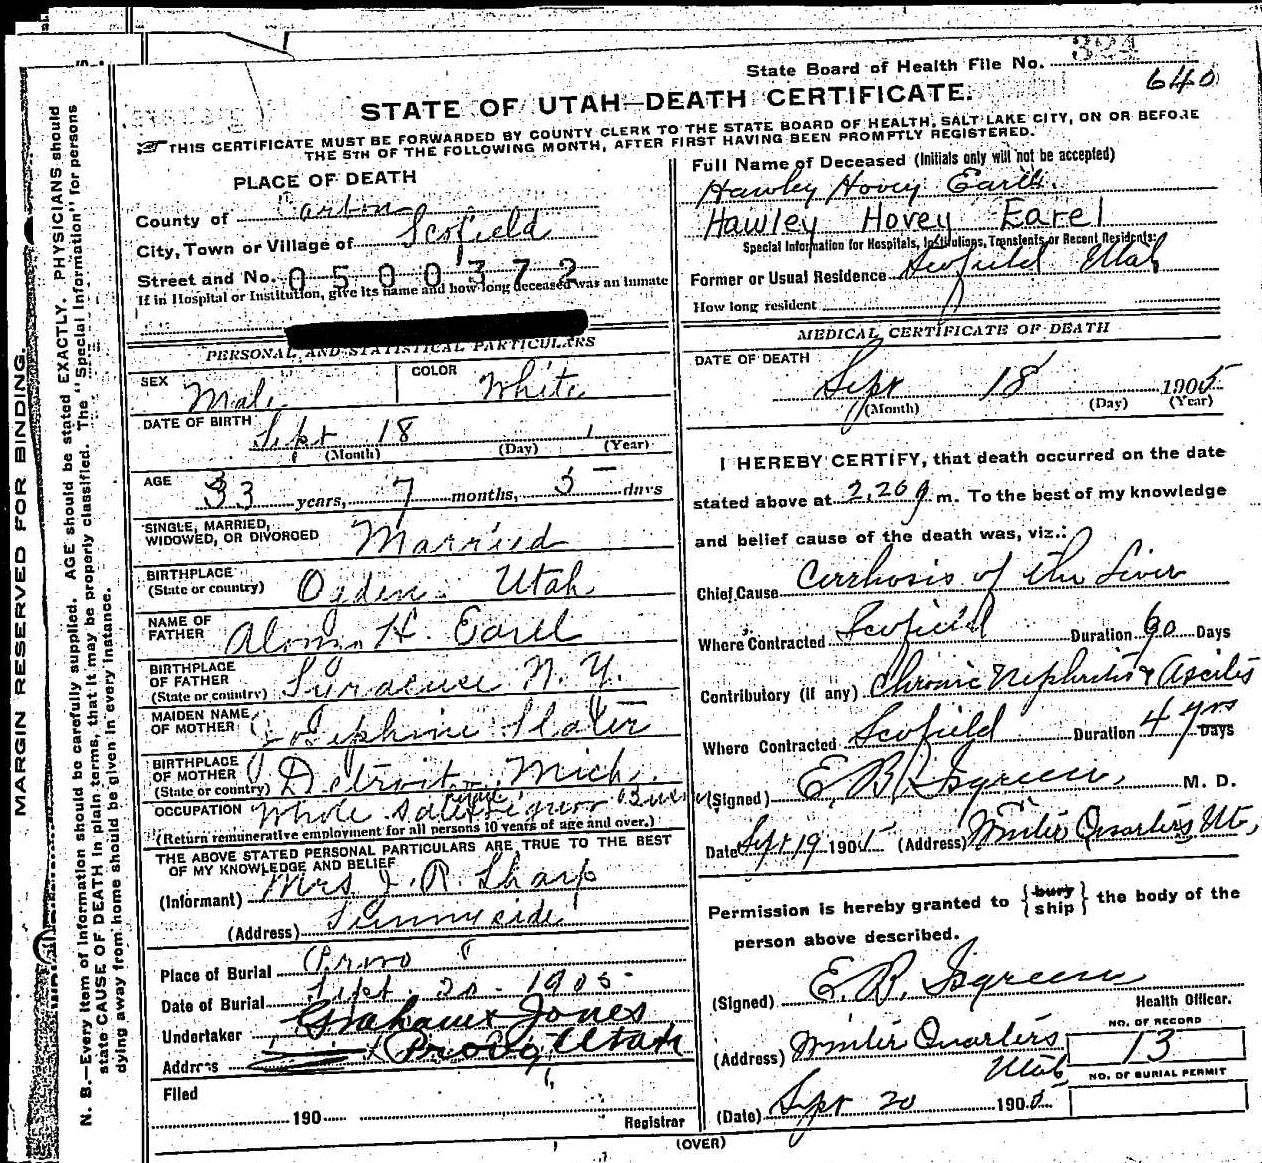 State Board of Health File No. 321
640
STATE OF UTAH—DEATH CERTIFICATE.
THIS CERTIFICATE MUST BE FORWARDED BY COUNTY CLERK TO THE STATE BOARD OF HEALTH, SALT LAKE CITY, ON OR BEFORE
THE 5TH OF THE FOLLOWING MONTH, AFTER FIRST HAVING BEEN PROMPTLY REGISTERED.
MARGIN RESERVED FOR BINDING.
N. B.—Every item of information should be carefully supplied. AGE should be stated EXACTLY. PHYSICIANS should
state CAUSE OF DEATH in plain terms, that it may be properly classified. The "Special Information" for persons
dying away from home should be given in every instance.
PLACE OF DEATH
County of Carbon
City, Town or Village of Scofield
Street and No. 0500372
If in Hospital or Institution, give its name and how long deceased was an inmate
PERSONAL AND STATISTICAL PARTICULARS
SEX Male
COLOR White
DATE OF BIRTH Sept 18
(Month) (Day) (Year)
AGE 33 years, 7 months, 5 days
SINGLE, MARRIED,
WIDOWED, OR DIVORCED Married
BIRTHPLACE
(State or country) Ogden Utah
NAME OF
FATHER H. Earel
BIRTHPLACE
OF FATHER
(State or country) Syracuse N. Y.
MAIDEN NAME
OF MOTHER Josephine Slater
BIRTHPLACE
OF MOTHER
(State or country) Detroit Mich.
OCCUPATION Whole Sale
(Return remunerative employment for all persons 10 years of age and over.)
THE ABOVE STATED PERSONAL PARTICULARS ARE TRUE TO THE BEST
OF MY KNOWLEDGE AND BELIEF
(Informant) Mrs J. R. Sharp
(Address) Sunnyside
Place of Burial Provo
Date of Burial Sept. 20 - 1905
Undertaker Graham & Jones
Address Provo Utah
Filed
190 Registrar
Full Name of Deceased (Initials only will not be accepted)
Hawley Hovey Earel
Hawley Hovey Earel
Special Information for Hospitals, Institutions, Transients or Recent Residents:
Former or Usual Residence Scofield Utah
How long resident
MEDICAL CERTIFICATE OF DEATH
DATE OF DEATH
Sept 18 1905
(Month) (Day) (Year)
I HEREBY CERTIFY, that death occurred on the date
stated above at 2,20 m. To the best of my knowledge
and belief cause of the death was, viz.:
Chief Cause Cerrhosis of the Liver
Where Contracted Scofield Duration 60 Days
Contributory (if any) Chronic Nephritis & Ascites
Where Contracted Scofield Duration 4 yrs Days
(Signed) E. B. Isgreen M. D.
Date Sept 19 1905 (Address) Winter Quarters Ut,
Permission is hereby granted to {bury ship} the body of the
person above described.
(Signed) E. B. Isgreen
Health Officer.
(Address) Winter Quarters
Utah
NO. OF RECORD
13
NO. OF BURIAL PERMIT
(Date) Sept 20 1905
(OVER)